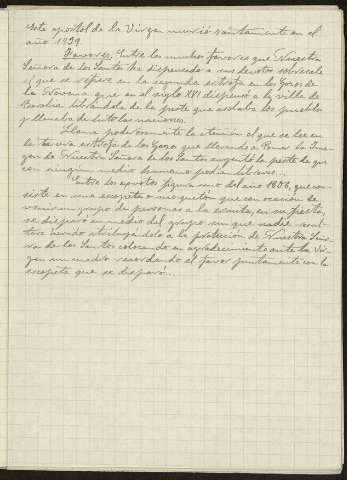 este apostol de la Virgen murió santamente en el
año 1939.
Favores. Entre los muchos favores que Nuestra
Señora de los Santos ha dispensado a sus devotos sobresale
el que se refiere en la segunda estrofa en los Gozos de
la Novena que en el siglo XVI dispensó a la villa de
librándola de la peste que asolaba los pueblos
y llenaba de luto las naciones.
Llama poderosamente la atención el que se lee en
la tercera estrofa de los Gozos que llevando a la Ima-
gen de Nuestra Señora de los Santos ahuyentó la peste de que
con ningún medio humano podían librarse...
Entre los exvotos figura uno del año 1806, que con-
siste en una escopeta o mosquetón que con ocasión de
varios grupos de personas a la ermita, en su fiesta,
se disparó en medio del grupo sin que nadie resul-
tara herido atribuyéndolo a la protección de Nuestra Seño-
ra de los Santos colocando en agradecimiento ante la Vir-
gen un cuadro recordando el favor juntamente con la
escopeta que se disparó...